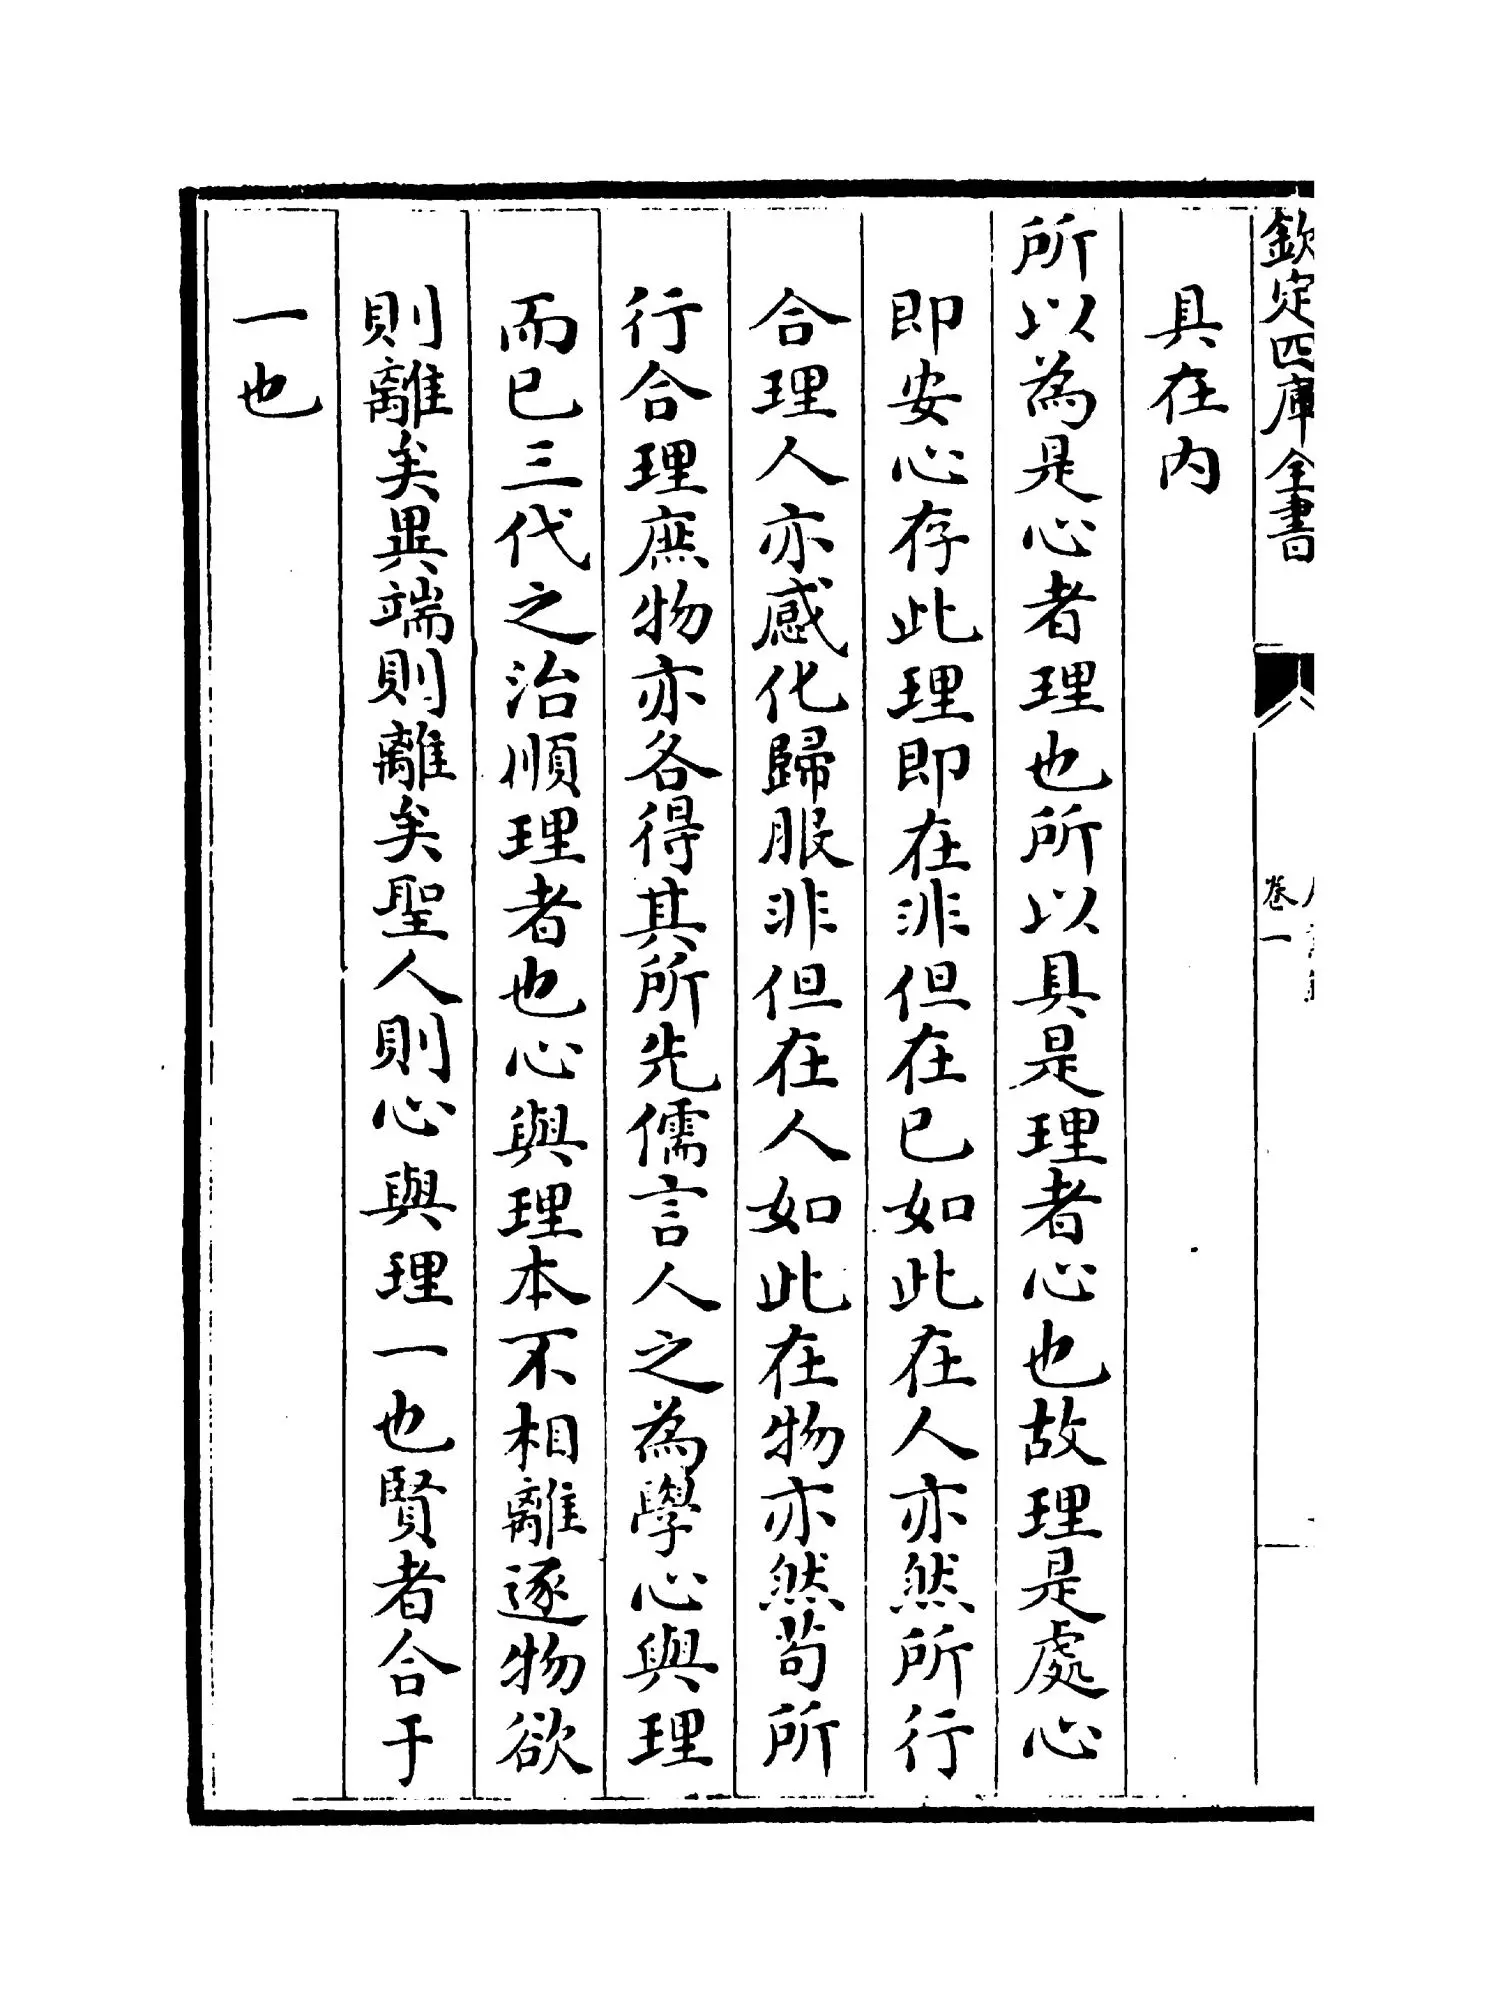 欽定四庫全書
卷一
具在内
所以為是心者理也所以具是理者心也故理是處心
即安心存此理即在非但在已如此在人亦然所行
合理人亦感化歸服非但在人如此在物亦然苟所
行合理庶物亦各得其所先儒言人之為學心與理
而已三代之治順理者也心與理本不相離逐物欲
則離矣異端則離矣聖人則心與理一也賢者合于
一也